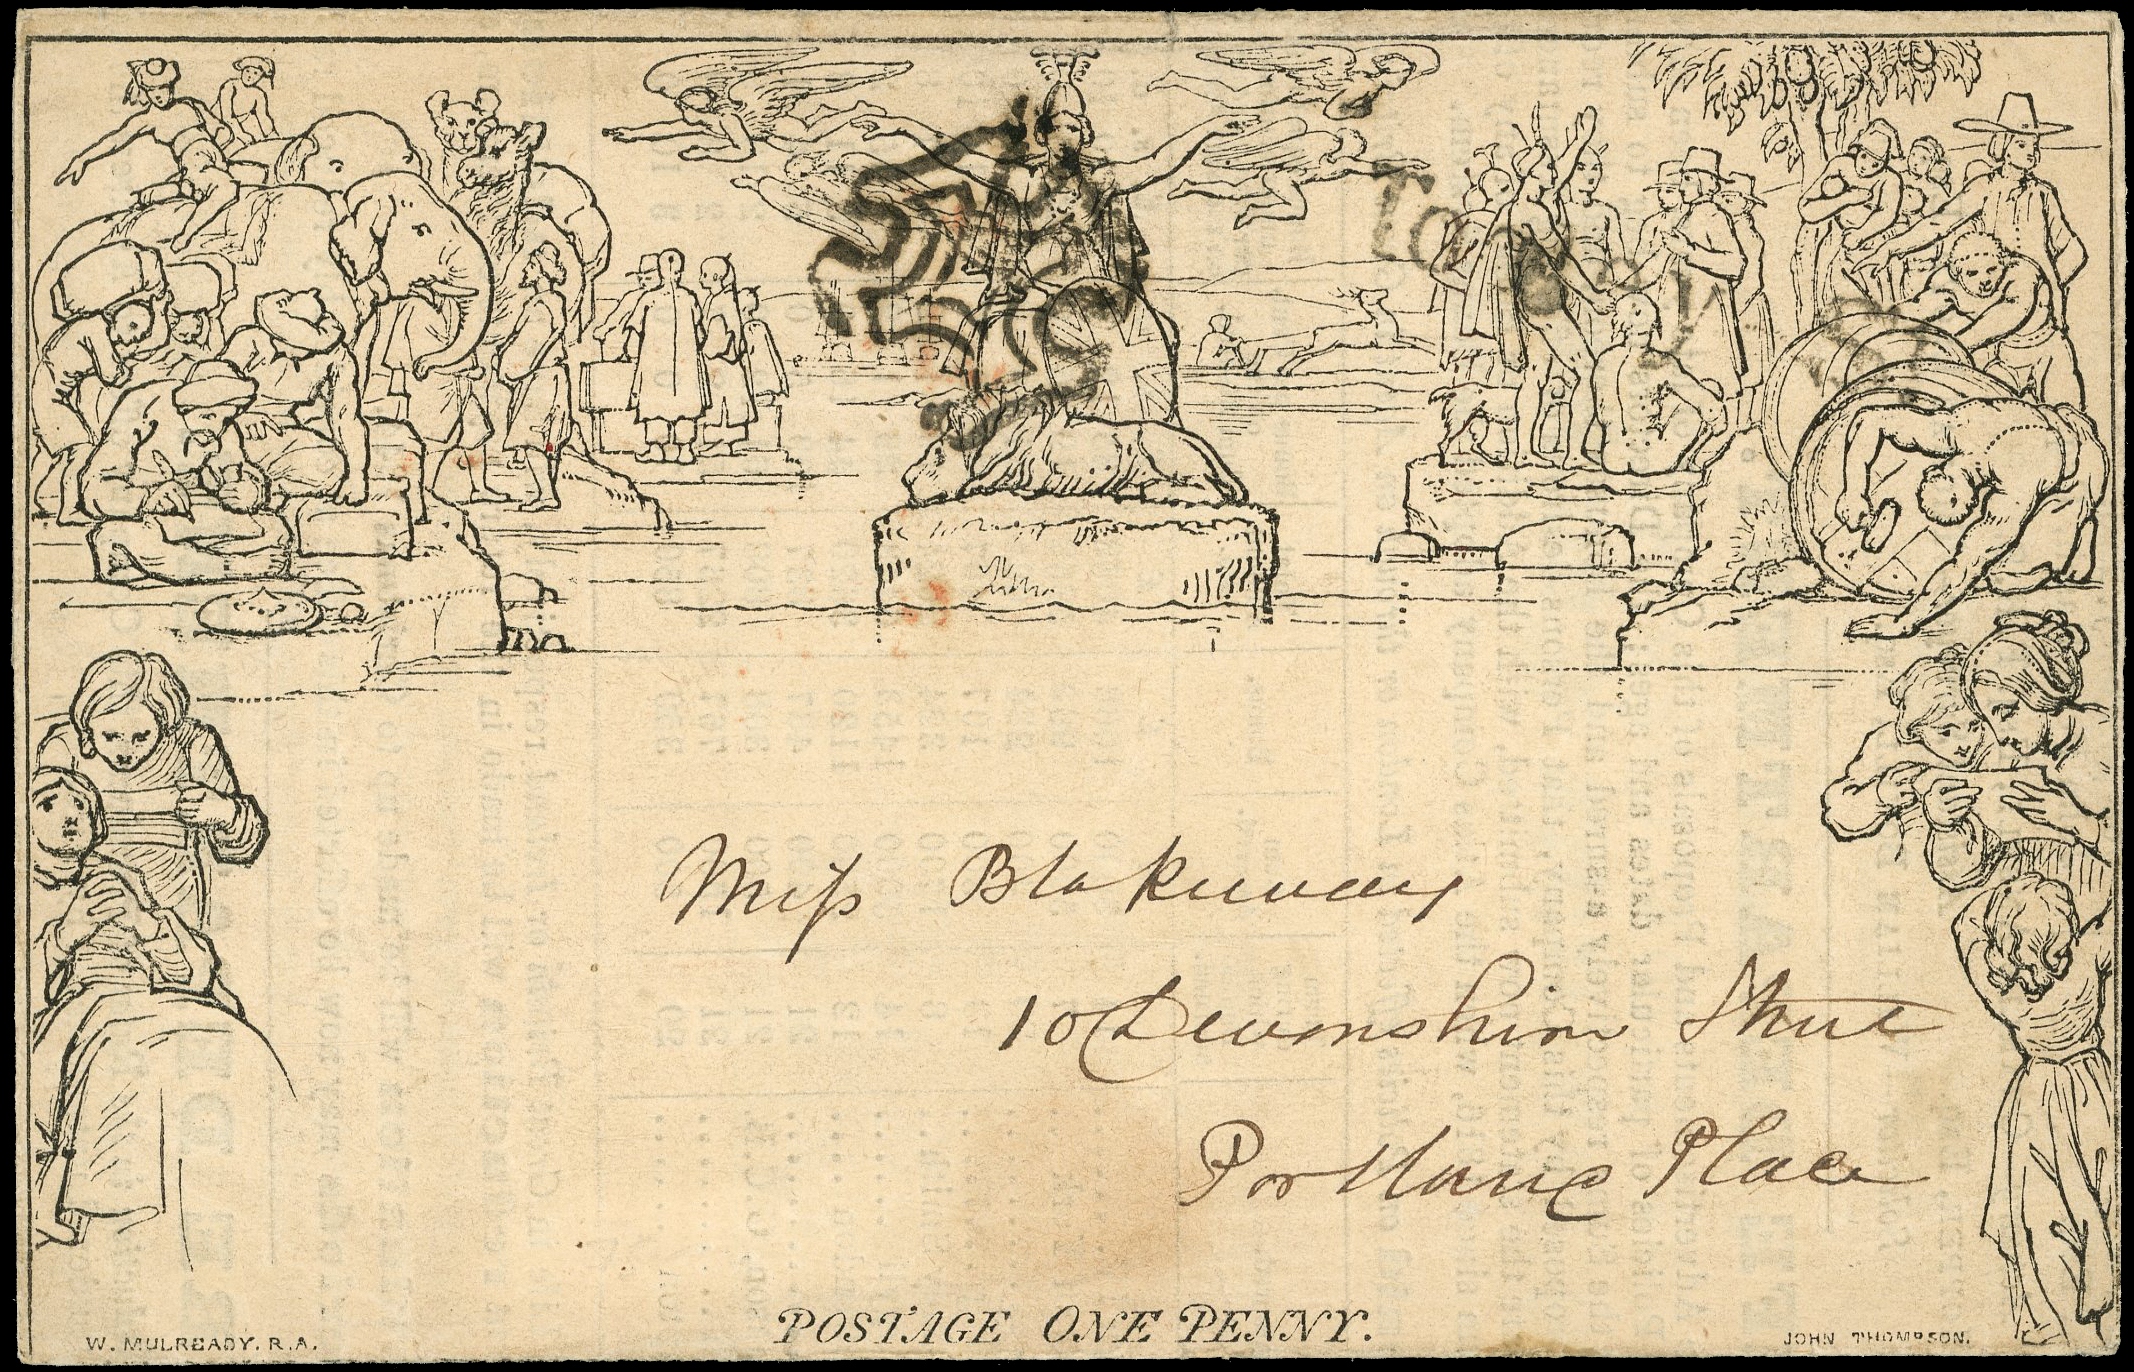 Miss Blakeway
10 Devonshire Street
Portland Place
POSTAGE ONE PENNY.
W. MULREADY. R.A.
JOHN THOMPSON.